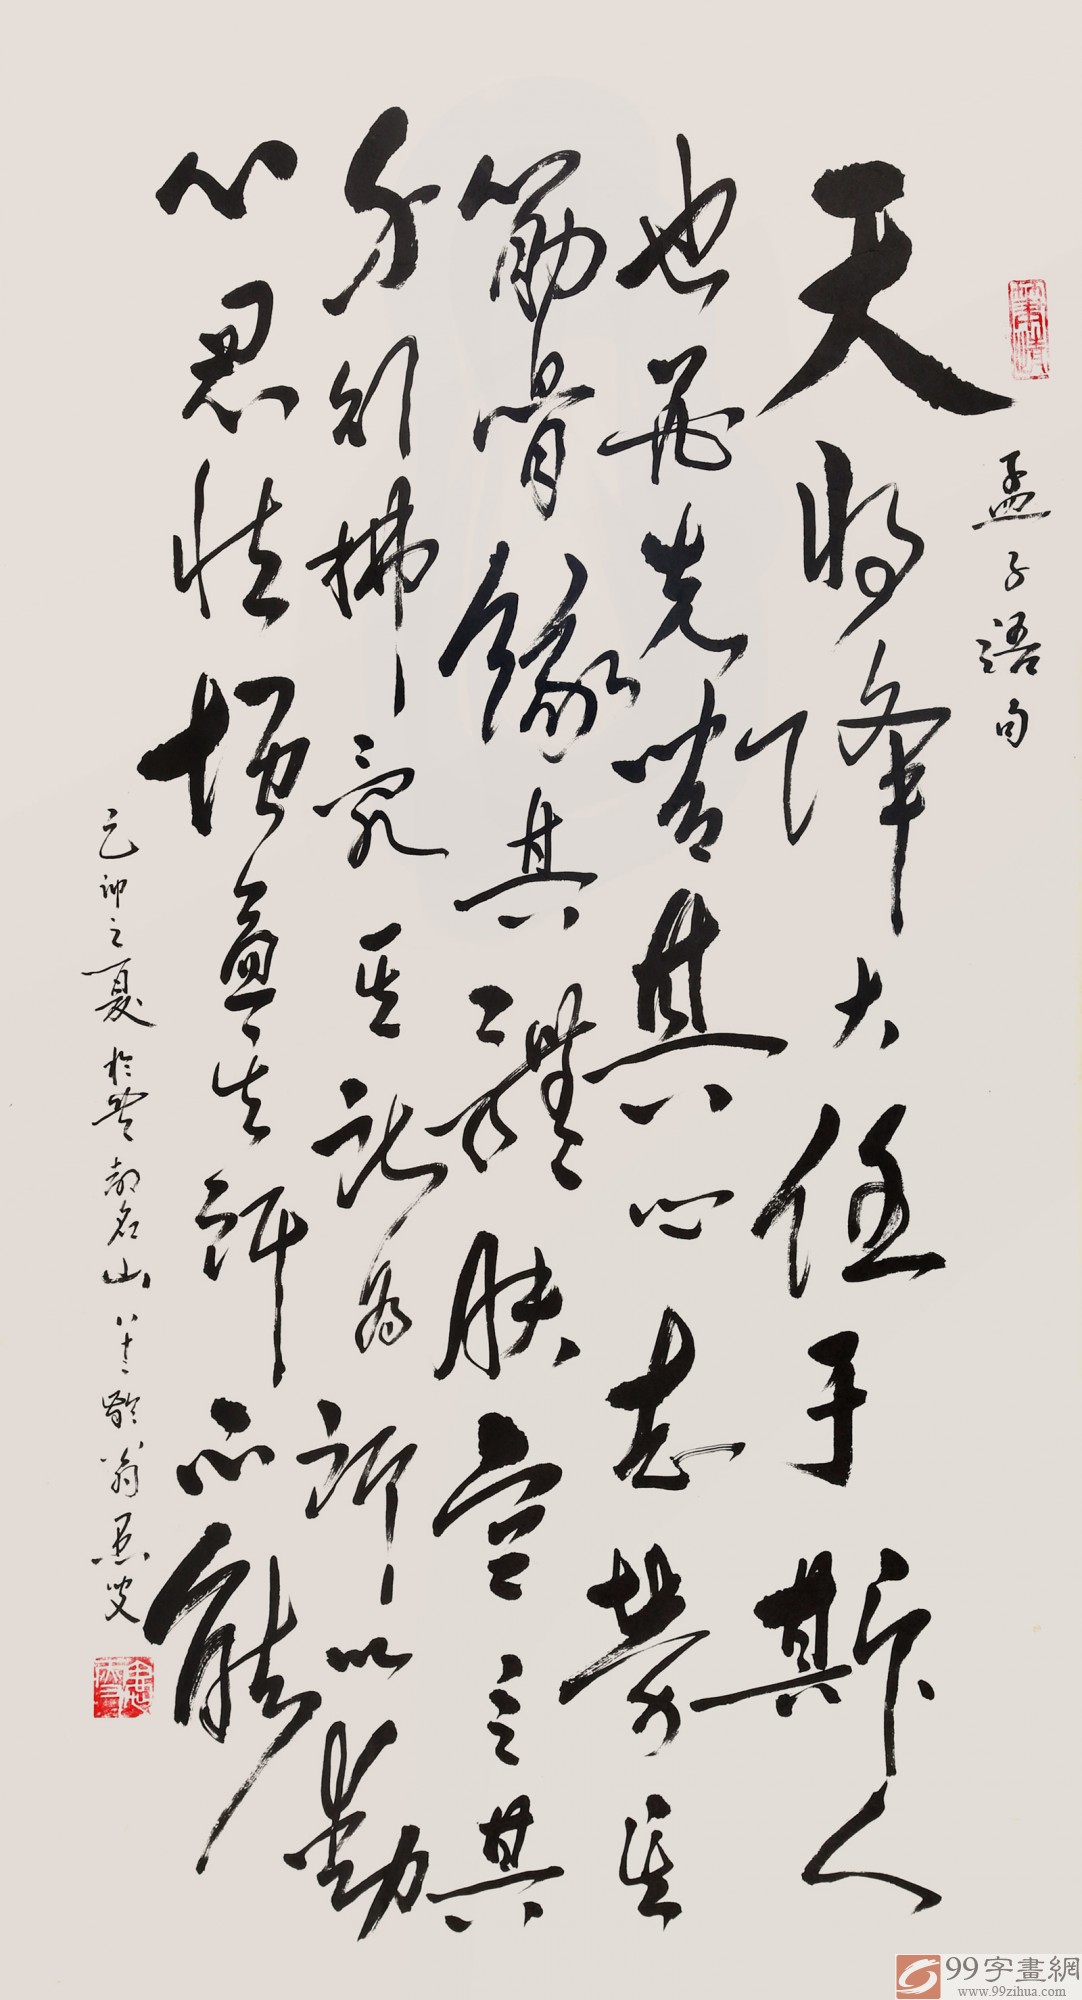 孟子語句
天将降大任于斯人
也必先苦其心志劳其
筋骨餓其體肤空乏其
身行拂乱其所为所以動
心忍性增益其所不能
己卯之夏於豐都名山八十二齡翁愚叟
99字畫網
www.99zihua.com